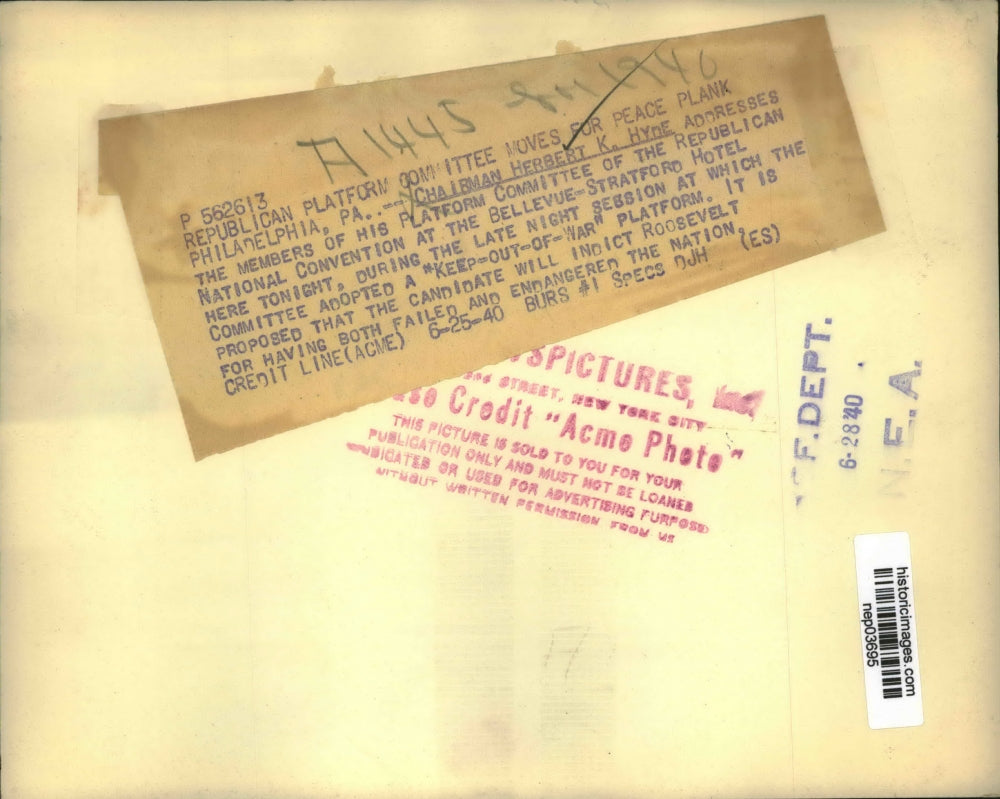 A1445
1940
P 562613
REPUBLICAN PLATFORM COMMITTEE MOVES FOR PEACE PLANK
PHILADELPHIA, PA..--CHAIRMAN HERBERT K. HYDE ADDRESSES
THE MEMBERS OF HIS PLATFORM COMMITTEE OF THE REPUBLICAN
NATIONAL CONVENTION AT THE BELLEVUE-STRATFORD HOTEL
HERE TONIGHT, DURING THE LATE NIGHT SESSION AT WHICH THE
COMMITTEE ADOPTED A "KEEP-OUT-OF-WAR" PLATFORM. IT IS
PROPOSED THAT THE CANDIDATE WILL INDICT ROOSEVELT
FOR HAVING BOTH FAILED AND ENDANGERED THE NATION.
CREDIT LINE(ACME) 6-25-40 BURS #1 SPECS DJH (ES)
SPICTURES,
STREET, NEW YORK CITY
Credit "Acme Photo"
THIS PICTURE IS SOLD TO YOU FOR YOUR
PUBLICATION ONLY AND MUST NOT BE LOANED
OR USED FOR ADVERTISING PURPOSE
WITHOUT WRITTEN PERMISSION FROM US
F. DEPT.
6-28 40
N.E.A.
historicimages.com
nep03695